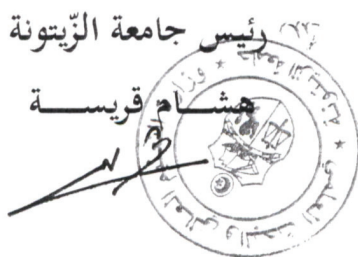 رئيس جامعة الزّيتونة
هشـــام قريســـة